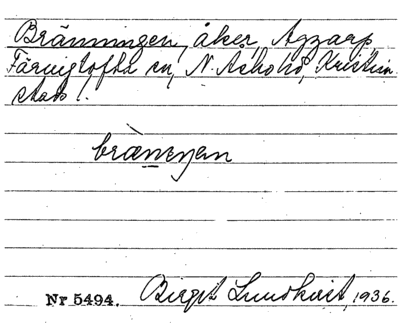 Bränningen, åker, Aggarp
Färingtofta sn, N. Åsbohd, Kristian
stads l.
bræ̀nenjen
Nr 5494. Birgit Lundkvist, 1936.